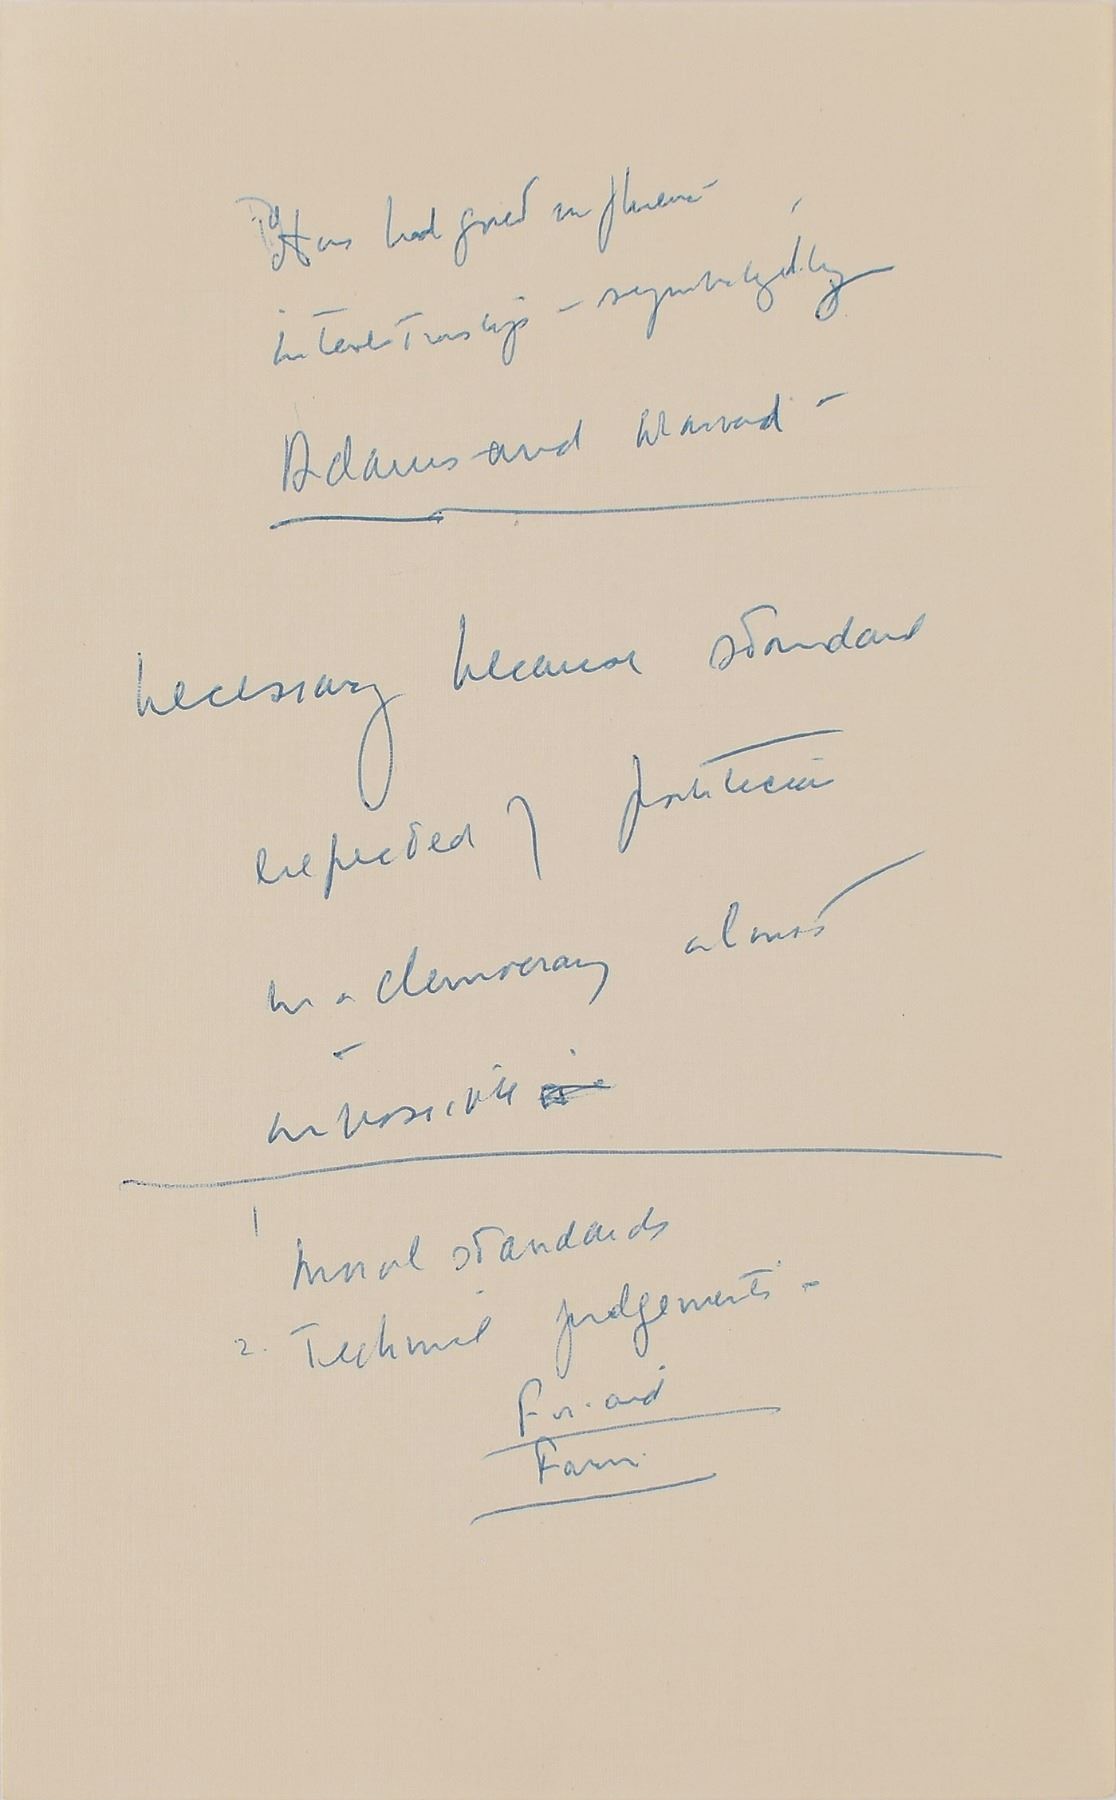 Has had great influence
in – symbolized by
Adams and Harvard –
necessary because standard
expected of politician
in a democracy almost
impossible
1 Moral standards
2. Technical judgements –
For. aid
Farm.